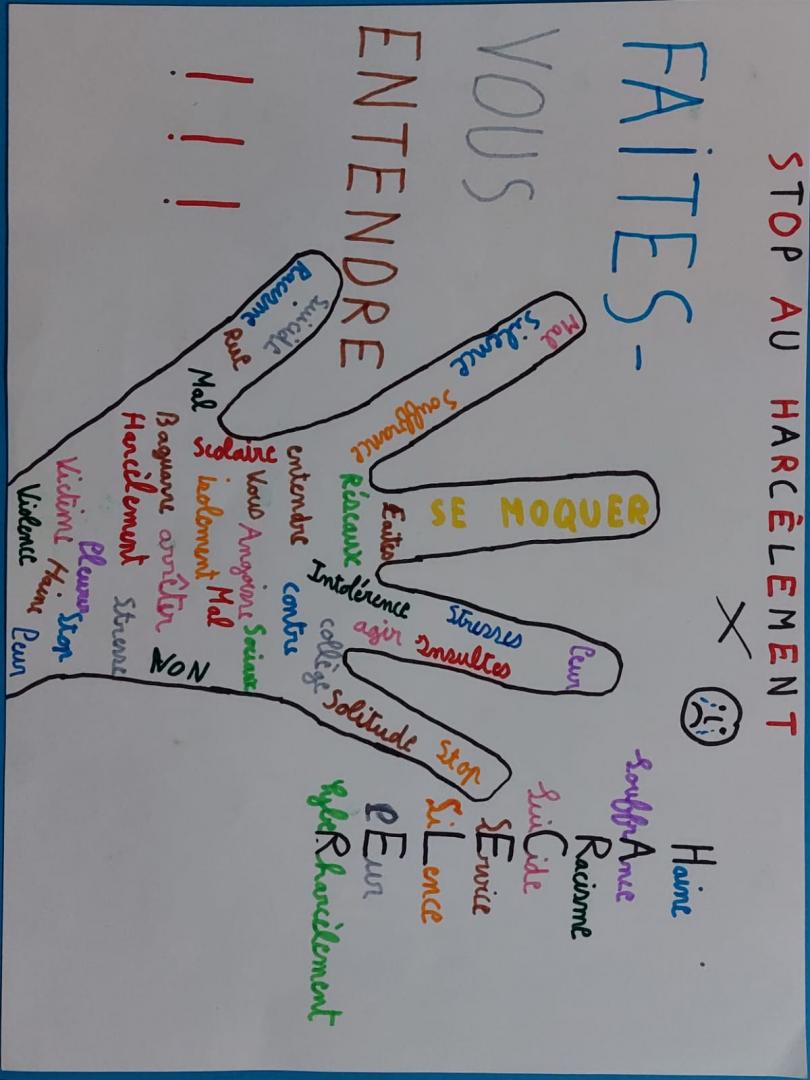 STOP AU HARCÊLEMENT
X
FAITES-
VOUS
ENTENDRE
! ! !
Haine
SouffrAnce
Racisme
SuiCide
SErvice
SiLence
PEur
CybeRharcèlement
Mal
Silence
Souffrance
SE MOQUER
Peur
Stresses
Insultes
Stop
Solitude
Racisme
Suicide
Rue
Mal
Faites
Réseaux
Intolérence
agir
collège
entendre
contre
Scolaire
Vous Angoisse Sociaux
isolement Mal
Baguarre arrêter
NON
Harcèlement
Stresse
Victime Pleurer Stop
Violence Haine Peur